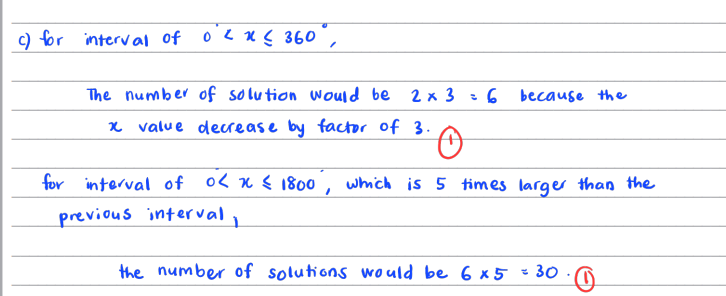 c) for interval of 0° < x ≤ 360°,
The number of solution would be 2 × 3 = 6 because the
x value decrease by factor of 3. ①
for interval of 0 < x ≤ 1800°, which is 5 times larger than the
previous interval,
the number of solutions would be 6 × 5 = 30. ①